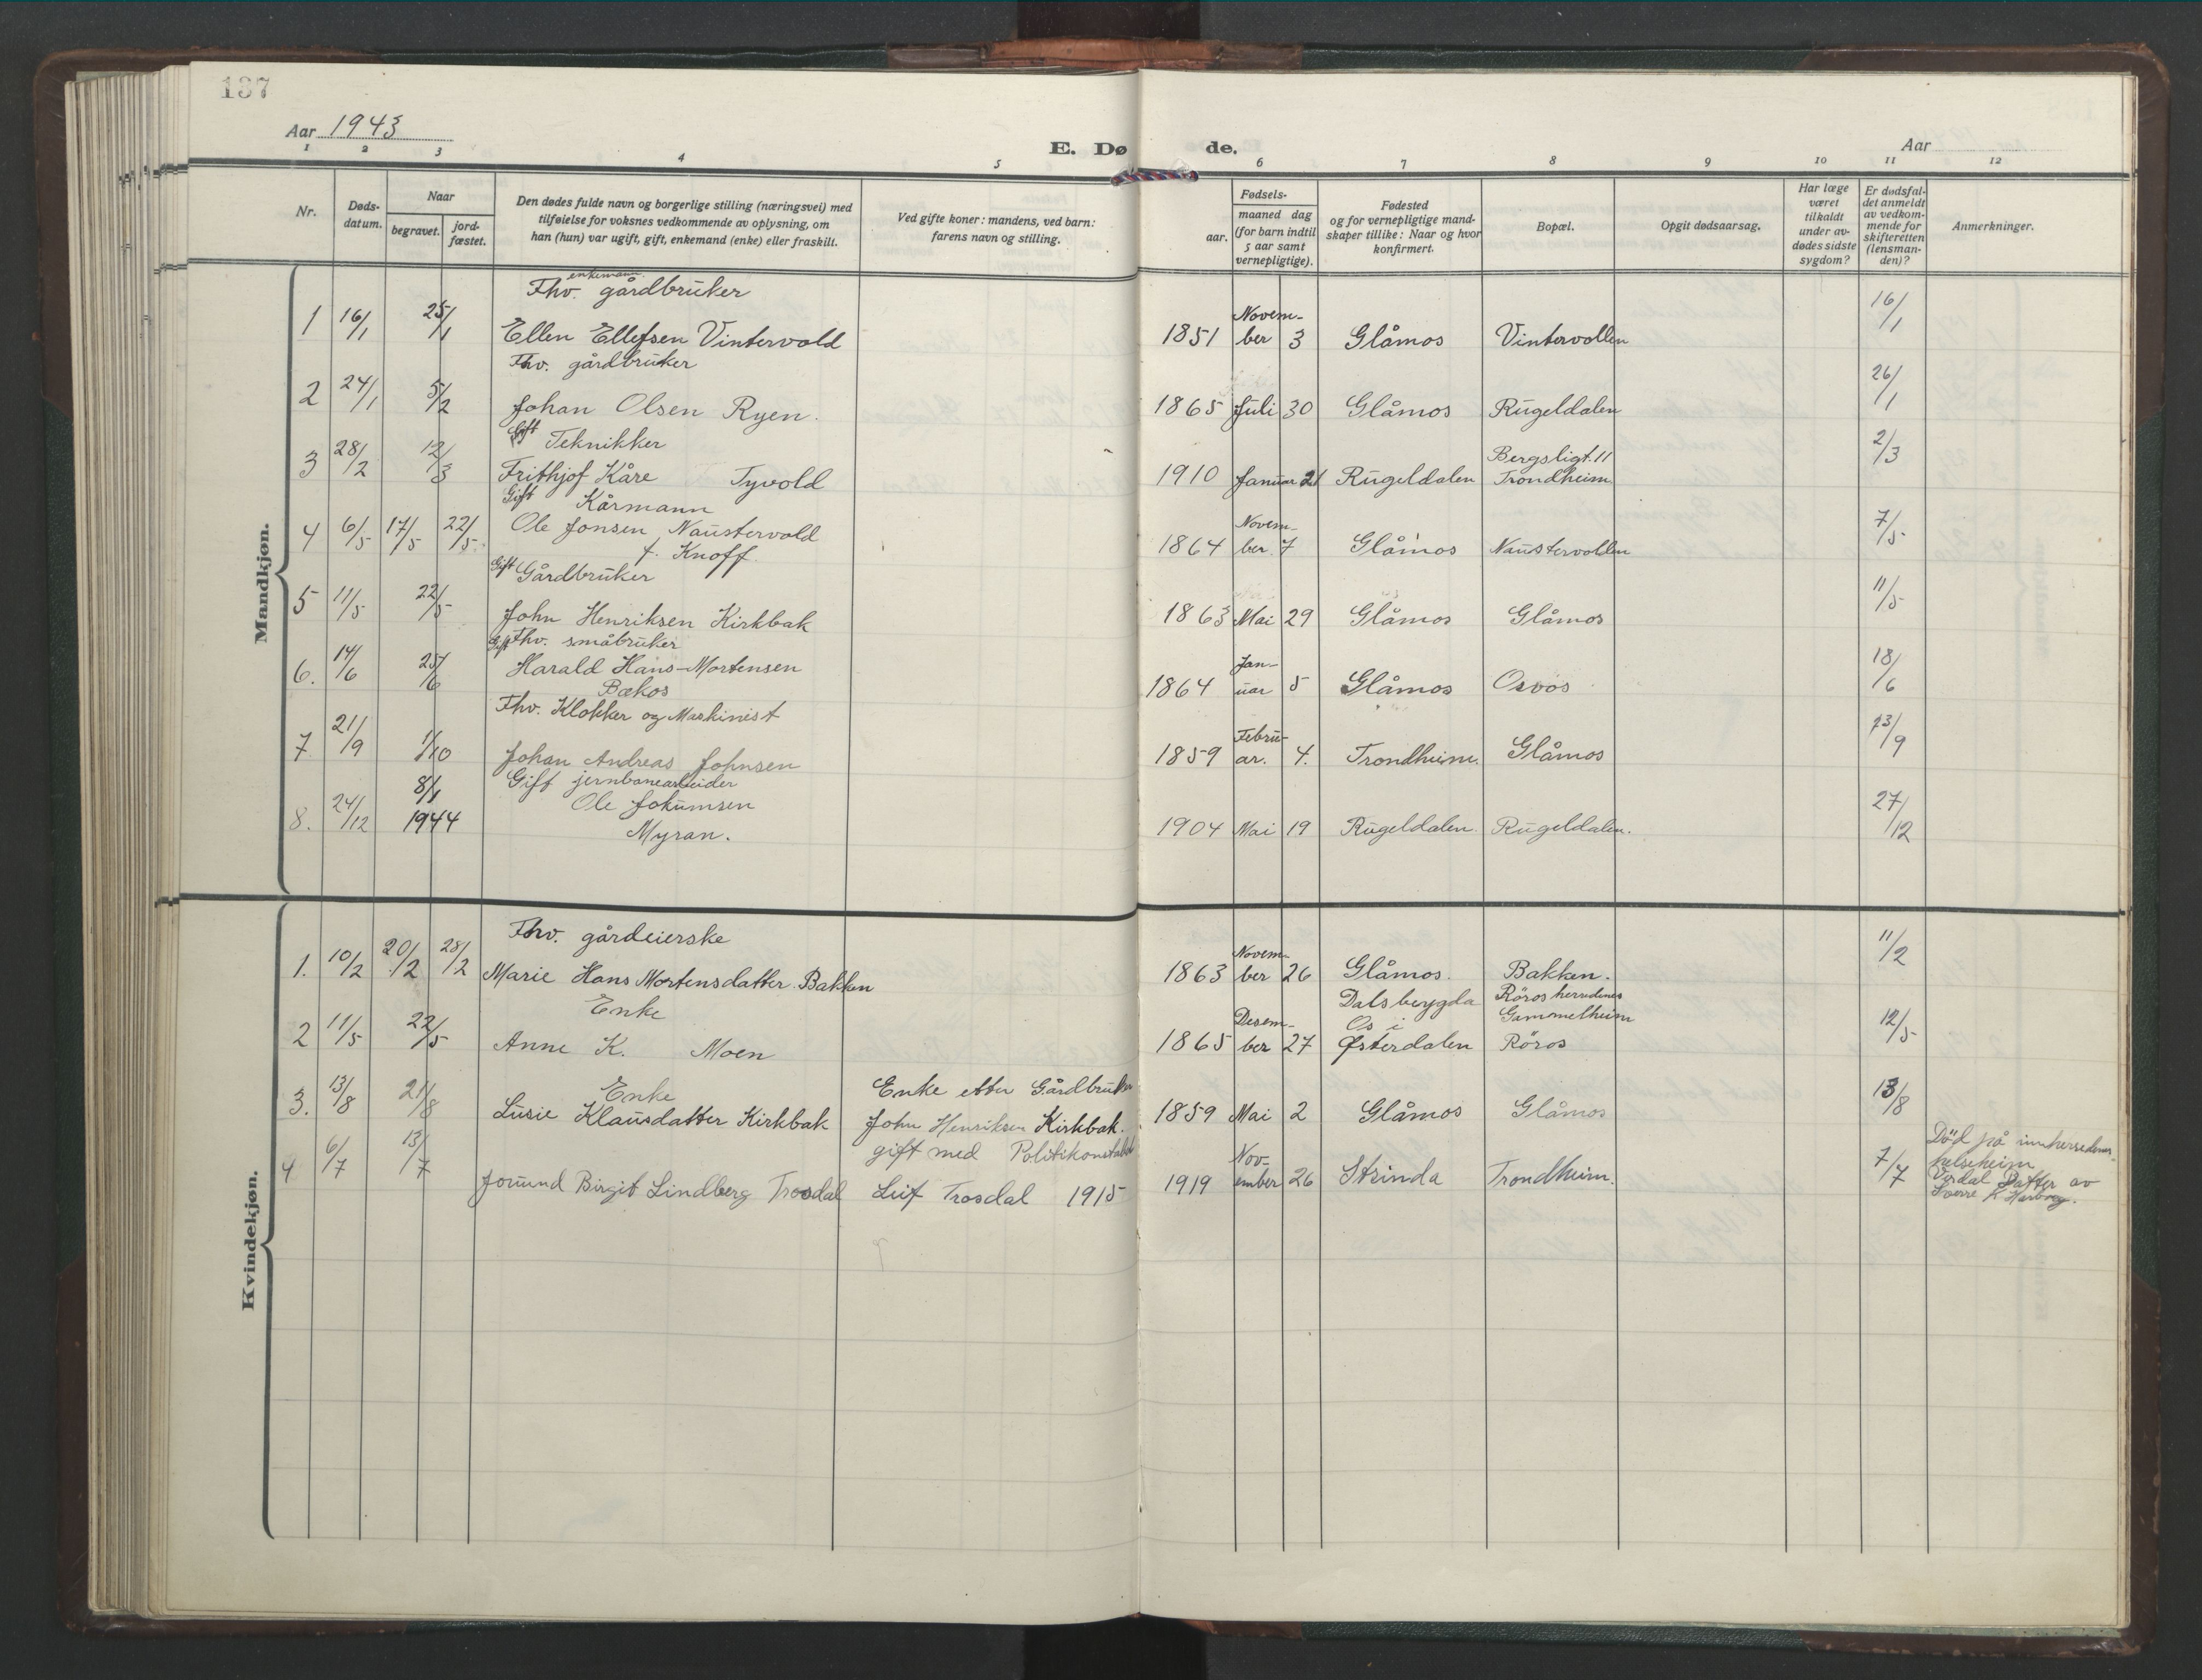 137
Aar 1943
E. Dø de.
Aar
1 2 3 4 5 6 7 8 9 10 11 12
Nr.
Døds-
datum.
Naar
begravet.
jord-
fæstet.
Den dødes fulde navn og borgerlige stilling (næringsvei) med
tilføielse for voksnes vedkommende av oplysning, om
han (hun) var ugift, gift, enkemand (enke) eller fraskilt.
Ved gifte koner: mandens, ved barn:
farens navn og stilling.
Fødsels-
aar.
maaned dag
(for barn indtil
5 aar samt
vernepligtige).
Fødested
og for vernepligtige mand-
skaper tillike: Naar og hvor
konfirmert.
Bopæl.
Opgit dødsaarsag.
Har læge
været
tilkaldt
under av-
dødes sidste
sygdom?
Er dødsfal-
det anmeldt
av vedkom-
mende for
skifteretten
(lensman-
den)?
Anmerkninger.
Mandkjøn.
enkemann.
Fhv. gårdbruker
1 16/1 25/1 Ellen Ellefsen Vintervold 1851 Novem-
ber 3 Glåmos Vintervollen 16/1
Fhv. gårdbruker
2 24/1 5/2 Johan Olsen Ryen. 1865 Juli 30 Glåmos Rugeldalen 26/1
Gift Teknikker
3 28/2 12/3 Frithjof Kåre Tyvold 1910 Januar 21 Rugeldalen Bergsligt. 11
Trondheim 2/3
Gift Kårmann
4 6/5 17/5 22/5 Ole Jonsen Naustervold
f. Knoff. 1864 Novem-
ber 7 Glåmos Naustervollen 7/5
Gift Gårdbruker
5 11/5 22/5 John Henriksen Kirkbak 1863 Mai 29 Glåmos Glåmos 11/5
Gift Fhv. småbruker
6. 14/6 25/6 Harald Hans-Mortensen
Bækos 1864 Jan-
uar 5 Glåmos Osvos 18/6
Fhv. Klokker og Maskinist
7. 21/9 1/10 Johan Andreas Johnsen 1859 Febru-
ar. 4. Trondheim. Glåmos 23/9
Gift jernbanearbeider
8. 24/12 8/1
1944 Ole Jokumsen
Myran. 1904 Mai 19 Rugeldalen. Rugeldalen. 27/12
Kvindekjøn.
Fhv. gårdeierske
1. 10/2 20/2 28/2 Marie Hans Mortensdatter Bakken 1863 Novem-
ber 26 Glåmos. Bakken. 11/2
Enke
2 11/5 22/5 Anne K. Moen 1865 Desem-
ber 27 Dalsbygda
Os i
Østerdalen Röros herredenes
Gammelheim
Röros 12/5
Enke
3. 13/8 21/8 Lusie Klausdatter Kirkbak Enke etter Gårdbruker
John Henriksen Kirkbak. 1859 Mai 2 Glåmos Glåmos 13/8
4 6/7 13/7 Jorund Birgit Lindberg Trosdal gift med Politikonstabel
Leif Trosdal 1915 1919 Nov-
ember 26 Strinda Trondheim. 7/7 Död på innherredenes
helseheim
Verdal Datter av
Sverre K Harborg.